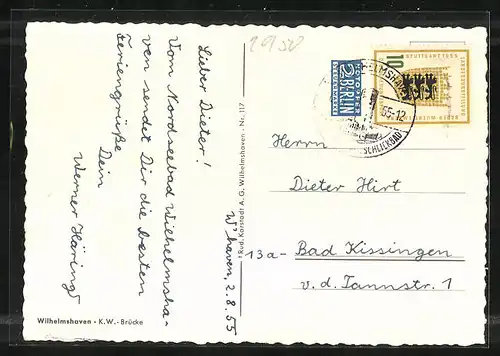 2950
Lieber Dieter!
Vom Nordseebad Wilhelmsha-
ven sendet Dir die besten
Feriengrüße
Dein
Werner Häring
W'haven, 2.8.55
Rud. Karstadt A.G. Wilhelmshaven - Nr. 117
Wilhelmshaven - K.W.-Brücke
NOTOPFER
2 BERLIN
STEUERMARKE
10
STUTTGART 1955
LANDESAUSSTELLUNG
55-12
SCHLICKBAD
Herrn
Dieter Hirt
13a- Bad Kissingen
v. d. Tannstr. 1